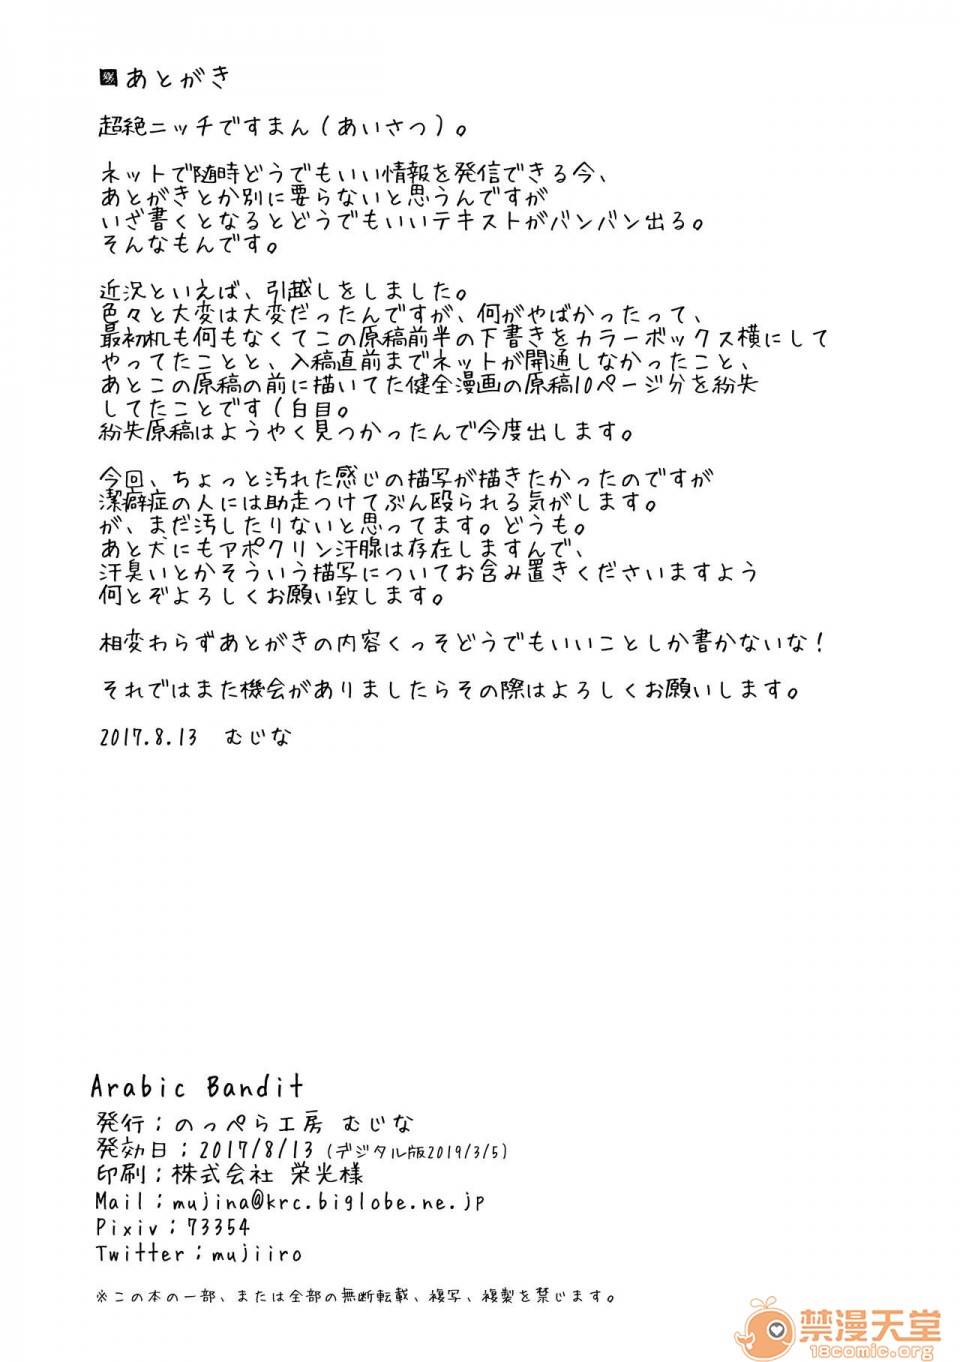 あとがき
超絶ニッチですまん(あいさつ)。
ネットで随時どうでもいい情報を発信できる今、
あとがきとか別に要らないと思うんですが
いざ書くとなるとどうでもいいテキストがバンバン出る。
そんなもんです。
近況といえば、引越しをしました。
色々と大変は大変だったんですが、何がやばかったって、
最初机も何もなくてこの原稿前半の下書きをカラーボックス横にして
やってたことと、入稿直前までネットが開通しなかったこと、
あとこの原稿の前に描いてた健全漫画の原稿10ページ分を紛失
してたことです(白目。
紛失原稿はようやく見つかったんで今度出します。
今回、ちょっと汚れた感じの描写が描きたかったのですが
潔癖症の人には助走つけてぶん殴られる気がします。
が、まだ汚したりないと思ってます。どうも。
あと犬にもアポクリン汗腺は存在しますんで、
汗臭いとかそういう描写についてお含み置きくださいますよう
何とぞよろしくお願い致します。
相変わらずあとがきの内容くっそどうでもいいことしか書かないな!
それではまた機会がありましたらその際はよろしくお願いします。
2017.8.13 むじな
Arabic Bandit
発行:のっぺら工房 むじな
発効日:2017/8/13 (デジタル版2019/3/5)
印刷:株式会社 栄光様
Mail:mujina@krc.biglobe.ne.jp
Pixiv:73354
Twitter:mujiiro
※この本の一部、または全部の無断転載、複写、複製を禁じます。
禁漫天堂
18comic.org